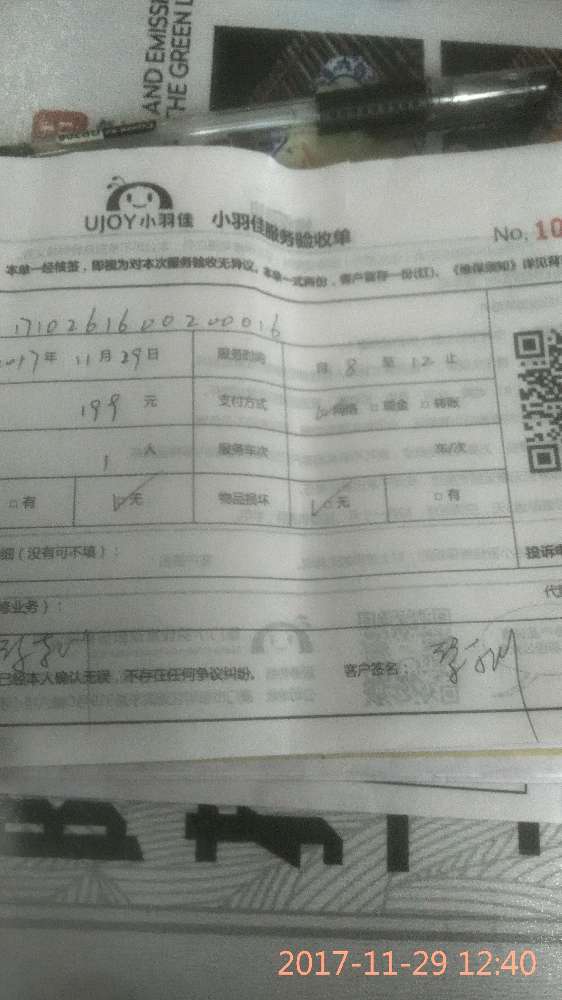 AND EMISS
THE GREEN L
UJOY小羽佳 小羽佳服务验收单
No. 10
本单一经核签，即视为对本次服务验收无异议。本单一式两份，客户留存一份(红)。《维保须知》详见背
17102616002000016
2017年 11月29日 服务时间 自 8 至 12 止
199 元 支付方式 网络 □ 现金 □ 转账
1 人 服务车次 车/次
□ 有 □ 无 物品损坏 □ 无 □ 有
细（没有可不填）： 投诉电
修业务）： 代
已经本人确认无误，不存在任何争议纠纷。 客户签名：
2017-11-29 12:40